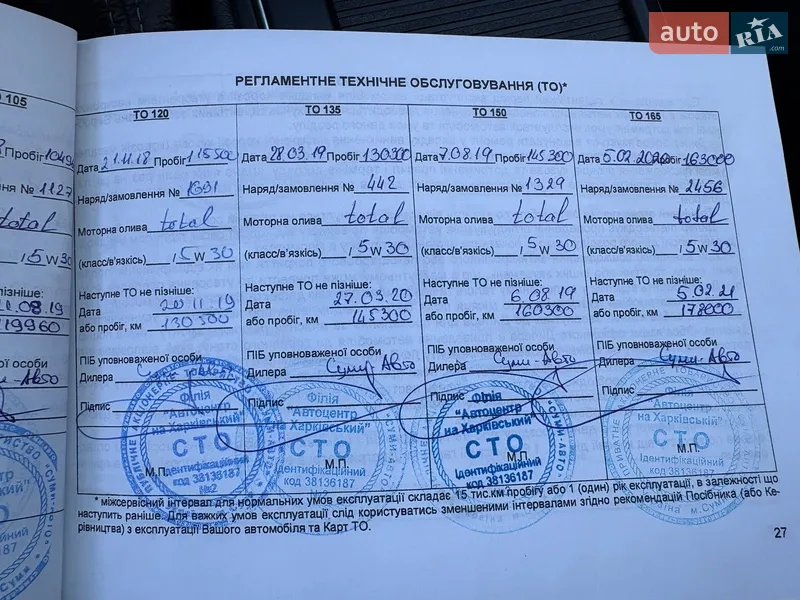 auto RIA .com
РЕГЛАМЕНТНЕ ТЕХНІЧНЕ ОБСЛУГОВУВАННЯ (ТО)*
ТО 105
Пробіг
ння № 1127
total
, 5 W 30
.08.19
119960
ТО 120
Дата 21.11.18 Пробіг 115500
Наряд/замовлення № 1691
Моторна олива total
(класс/в'язкість) , 5 W 30
Наступне ТО не пізніше:
Дата 20.11.19
або пробіг, км 130500
ПІБ уповноваженої особи
Дилера
Підпис
М.П.
ТО 135
Дата 28.03.19 Пробіг 130300
Наряд/замовлення № 442
Моторна олива total
(класс/в'язкість) , 5 W 30
Наступне ТО не пізніше:
Дата 27.03.20
або пробіг, км 145300
ПІБ уповноваженої особи
Дилера Суми Авто
Підпис
М.П.
ТО 150
Дата 7.08.19 Пробіг 145300
Наряд/замовлення № 1329
Моторна олива total
(класс/в'язкість) , 5 W 30
Наступне ТО не пізніше:
Дата 6.08.19
або пробіг, км 160300
ПІБ уповноваженої особи
Дилера Суми-Авто
Підпис
М.П.
ТО 165
Дата 5.02.2020 Пробіг 163000
Наряд/замовлення № 2456
Моторна олива total
(класс/в'язкість) , 5 W 30
Наступне ТО не пізніше:
Дата 5.02.21
або пробіг, км 178000
ПІБ уповноваженої особи
Дилера Суми-Авто
Підпис
М.П.
Філія
"Автоцентр
на Харківський"
СТО
Ідентифікаційний
код 38136187
№2
Філія
"Автоцентр
на Харківський"
СТО
Ідентифікаційний
код 38136187
Філія
"Автоцентр
на Харківський"
СТО
Ідентифікаційний
код 38136187
"СУМИ-АВТО"
Філія
"Автоцентр
на Харківський"
СТО
Ідентифікаційний
код 38136187
* міжсервісний інтервал для нормальних умов експлуатації складає 15 тис.км пробігу або 1 (один) рік експлуатації, в залежності що
наступить раніше. Для важких умов експлуатації слід користуватись зменшеними інтервалами згідно рекомендацій Посібника (або Ке-
рівництва) з експлуатації Вашого автомобіля та Карт ТО.
27